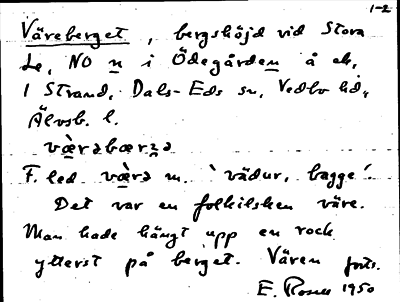 1-2
Väreberget, bergshöjd vid Stora
Le, NO n i Ödegården å ek,
1 Strand, Dals-Eds sn, Vedbo hd,
Älvsb. l.
væ̀rəbærɡ̣ə
F. led væ̀rə m. ‵vädur, bagge′.
Det var en folkilsken väre.
Man hade hängt upp en rock
ytterst på berget. Vären forts.
E. Rosell 1950